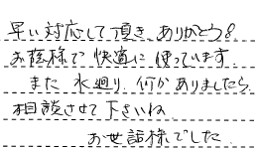 早い対応して頂き、ありがとう!
お蔭様で 快適に 使っています.
また 水廻り、何か ありましたら、
相談させて 下さいね.
お世話様でした.